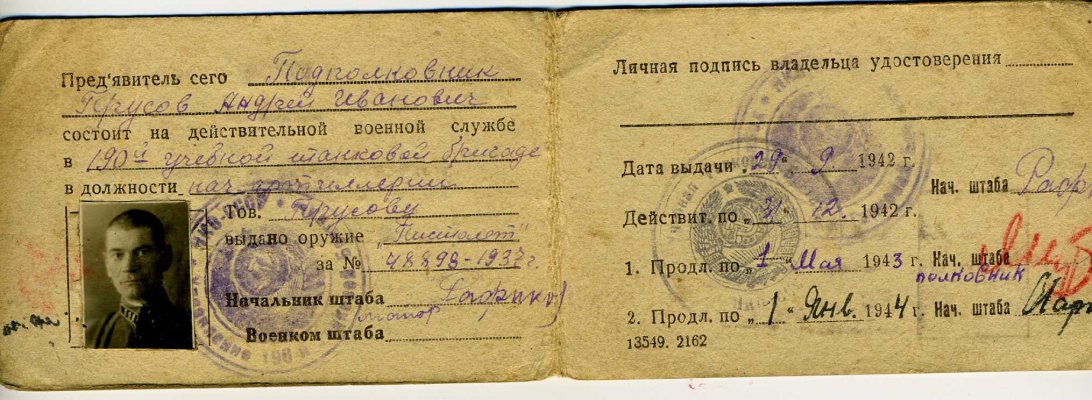 Пред'явитель сего Подполковник
Трусов Андрей Иванович
состоит на действительной военной службе
в 190й учебной танковой бригаде
в должности нач. артиллерии
Тов. Трусову
выдано оружие „Пистолет"
за № 48898-1937 г.
Начальник штаба
майор
Военком штаба
Личная подпись владельца удостоверения
Дата выдачи „29" 9 1942 г.
Нач. штаба
Действит. по „31" 12. 1942 г.
1. Продл. по „1" Мая 1943 г. Нач. штаба
полковник
2. Продл. по „1" Янв. 1944 г. Нач. штаба
13549. 2162